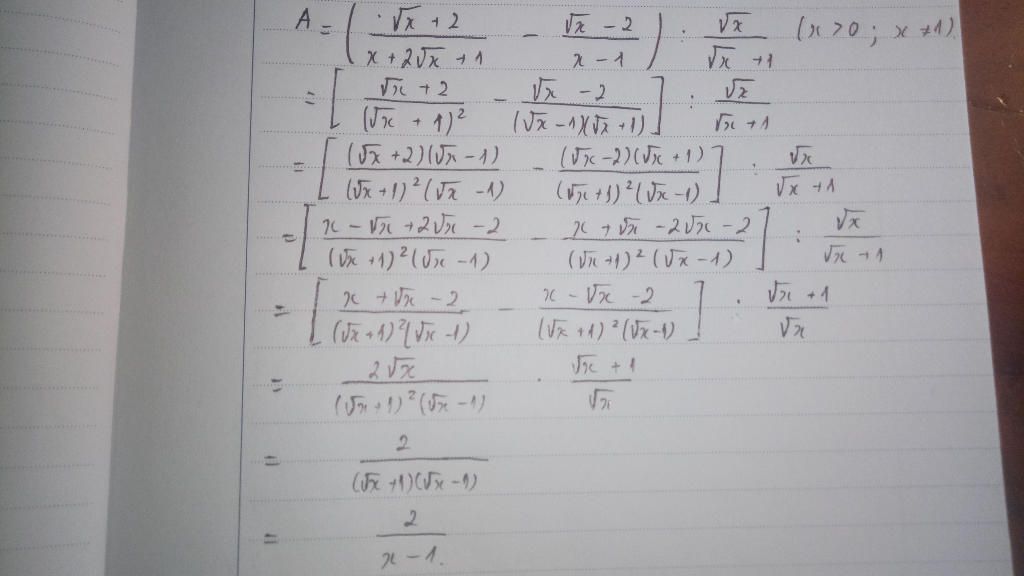 A = ( (√x + 2)/(x + 2√x + 1) - (√x - 2)/(x - 1) ) : √x/(√x + 1) (x > 0 ; x ≠ 1).
= [ (√x + 2)/(√x + 1)² - (√x - 2)/((√x - 1)(√x + 1)) ] : √x/(√x + 1)
= [ (√x + 2)(√x - 1)/((√x + 1)²(√x - 1)) - (√x - 2)(√x + 1)/((√x + 1)²(√x - 1)) ] : √x/(√x + 1)
= [ (x - √x + 2√x - 2)/((√x + 1)²(√x - 1)) - (x + √x - 2√x - 2)/((√x + 1)²(√x - 1)) ] : √x/(√x + 1)
= [ (x + √x - 2)/((√x + 1)²(√x - 1)) - (x - √x - 2)/((√x + 1)²(√x - 1)) ] . (√x + 1)/√x
= 2√x/((√x + 1)²(√x - 1)) . (√x + 1)/√x
= 2/((√x + 1)(√x - 1))
= 2/(x - 1).